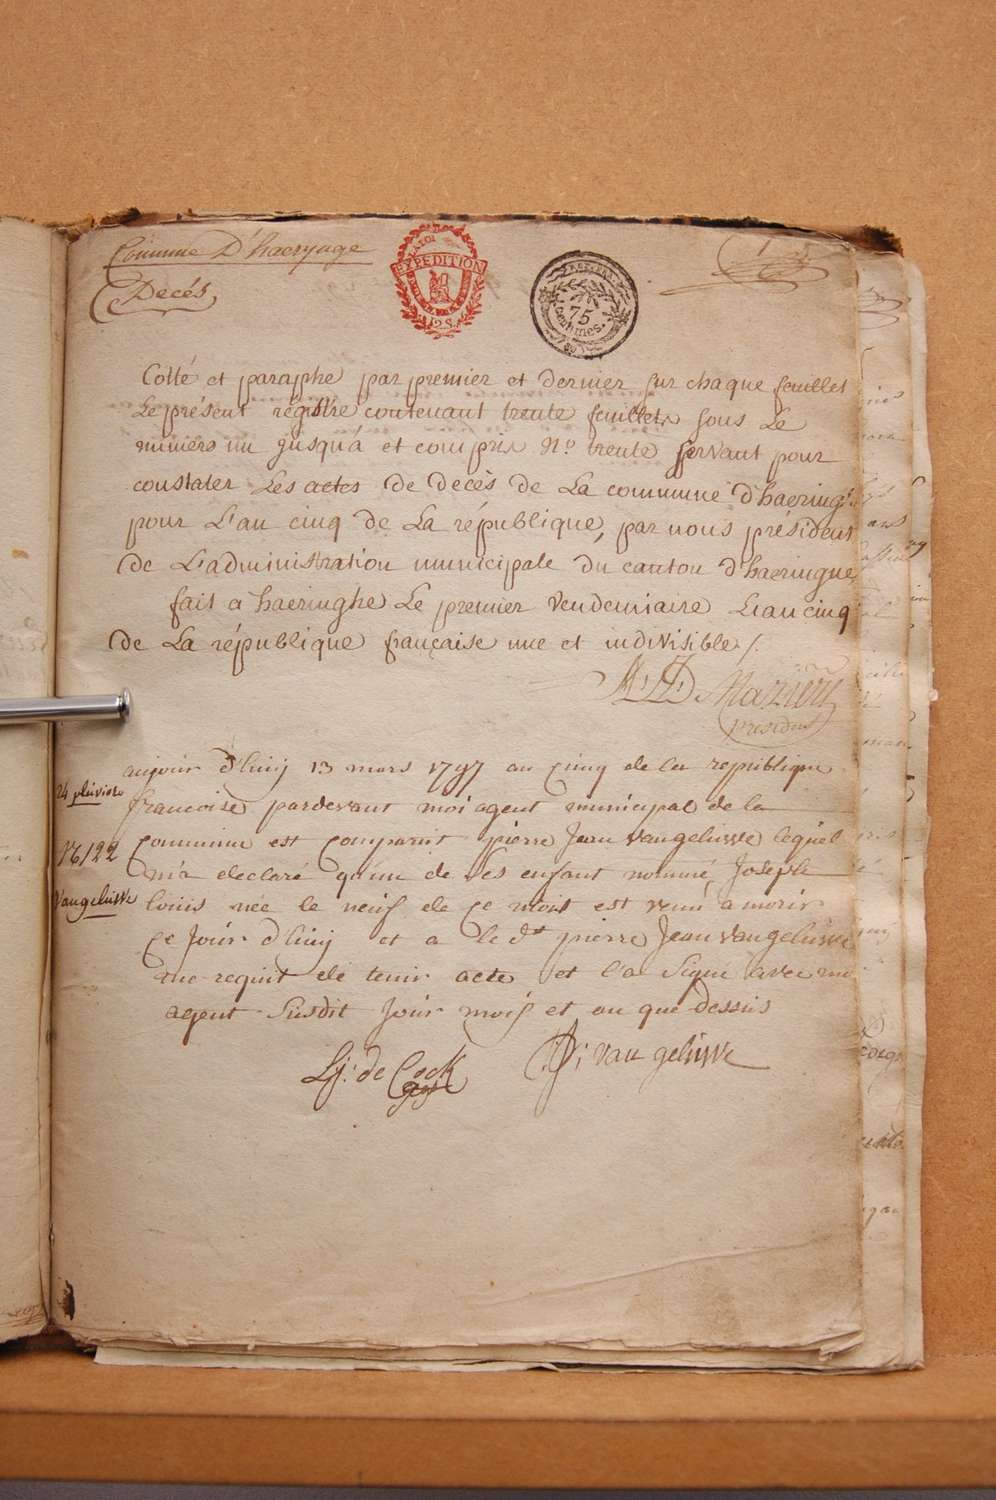 Commune D'haerynge
Decés
EXPEDITION
75
centimes.
Cotté et paraphé par premier et dernier sur chaque feuillet
Le présent régistre contenant trente feuillets sous Le
numero un jusquá et compris N.o trente servant pour
constater Les actes de decès de La commune d'haering
pour L'an cinq de La république, par nous président
de L'administration municipale du canton d'haeringue
fait a haeringhe Le premier vendemiaire L'an cinq
de La république française une et indivisible /.
président
aujour d'huij 13 mars 1797 an cinq de la republique
24 pluviose
francoise pardevant moi agent municipal de la
commune est comparut pierre Jean vangeluwe lequel
m'a declaré qu'un de ses enfant nommé Joseph
vangeluwe
louis née le neuf de ce mois est venú a morir
ce jour d'huij et a le dt pierre Jean vangeluwe
me requit de tenir acte et l'a signé avec moi
agent susdit jour mois et an que dessus
Lj: de Cock
P: J: van geluwe